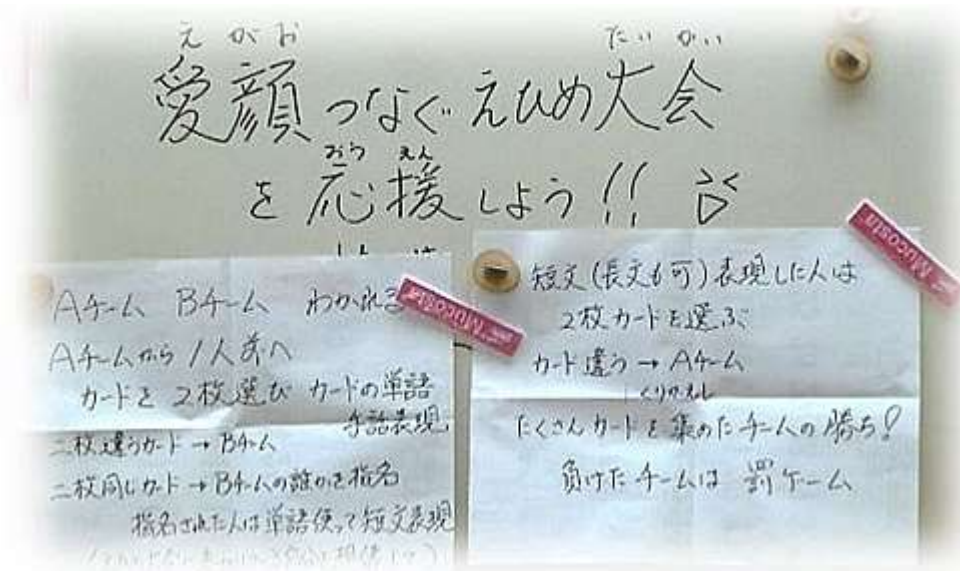 えがお
たいかい
愛顔つなぐえひめ大会
おうえん
を応援しよう!!
Aチーム Bチーム わかれる
Aチームから1人前へ
カードを2枚選び カードの単語
手話表現
二枚違うカード→Bチーム
二枚同じカード→Bチームの誰かを指名
指名された人は単語使って短文表現
Mucosta
短文(長文も可)表現した人は
2枚カードを選ぶ
カード違う→Aチーム
くりかえし
たくさんカードを集めたチームの勝ち!
負けたチームは 罰ゲーム
Mucosta